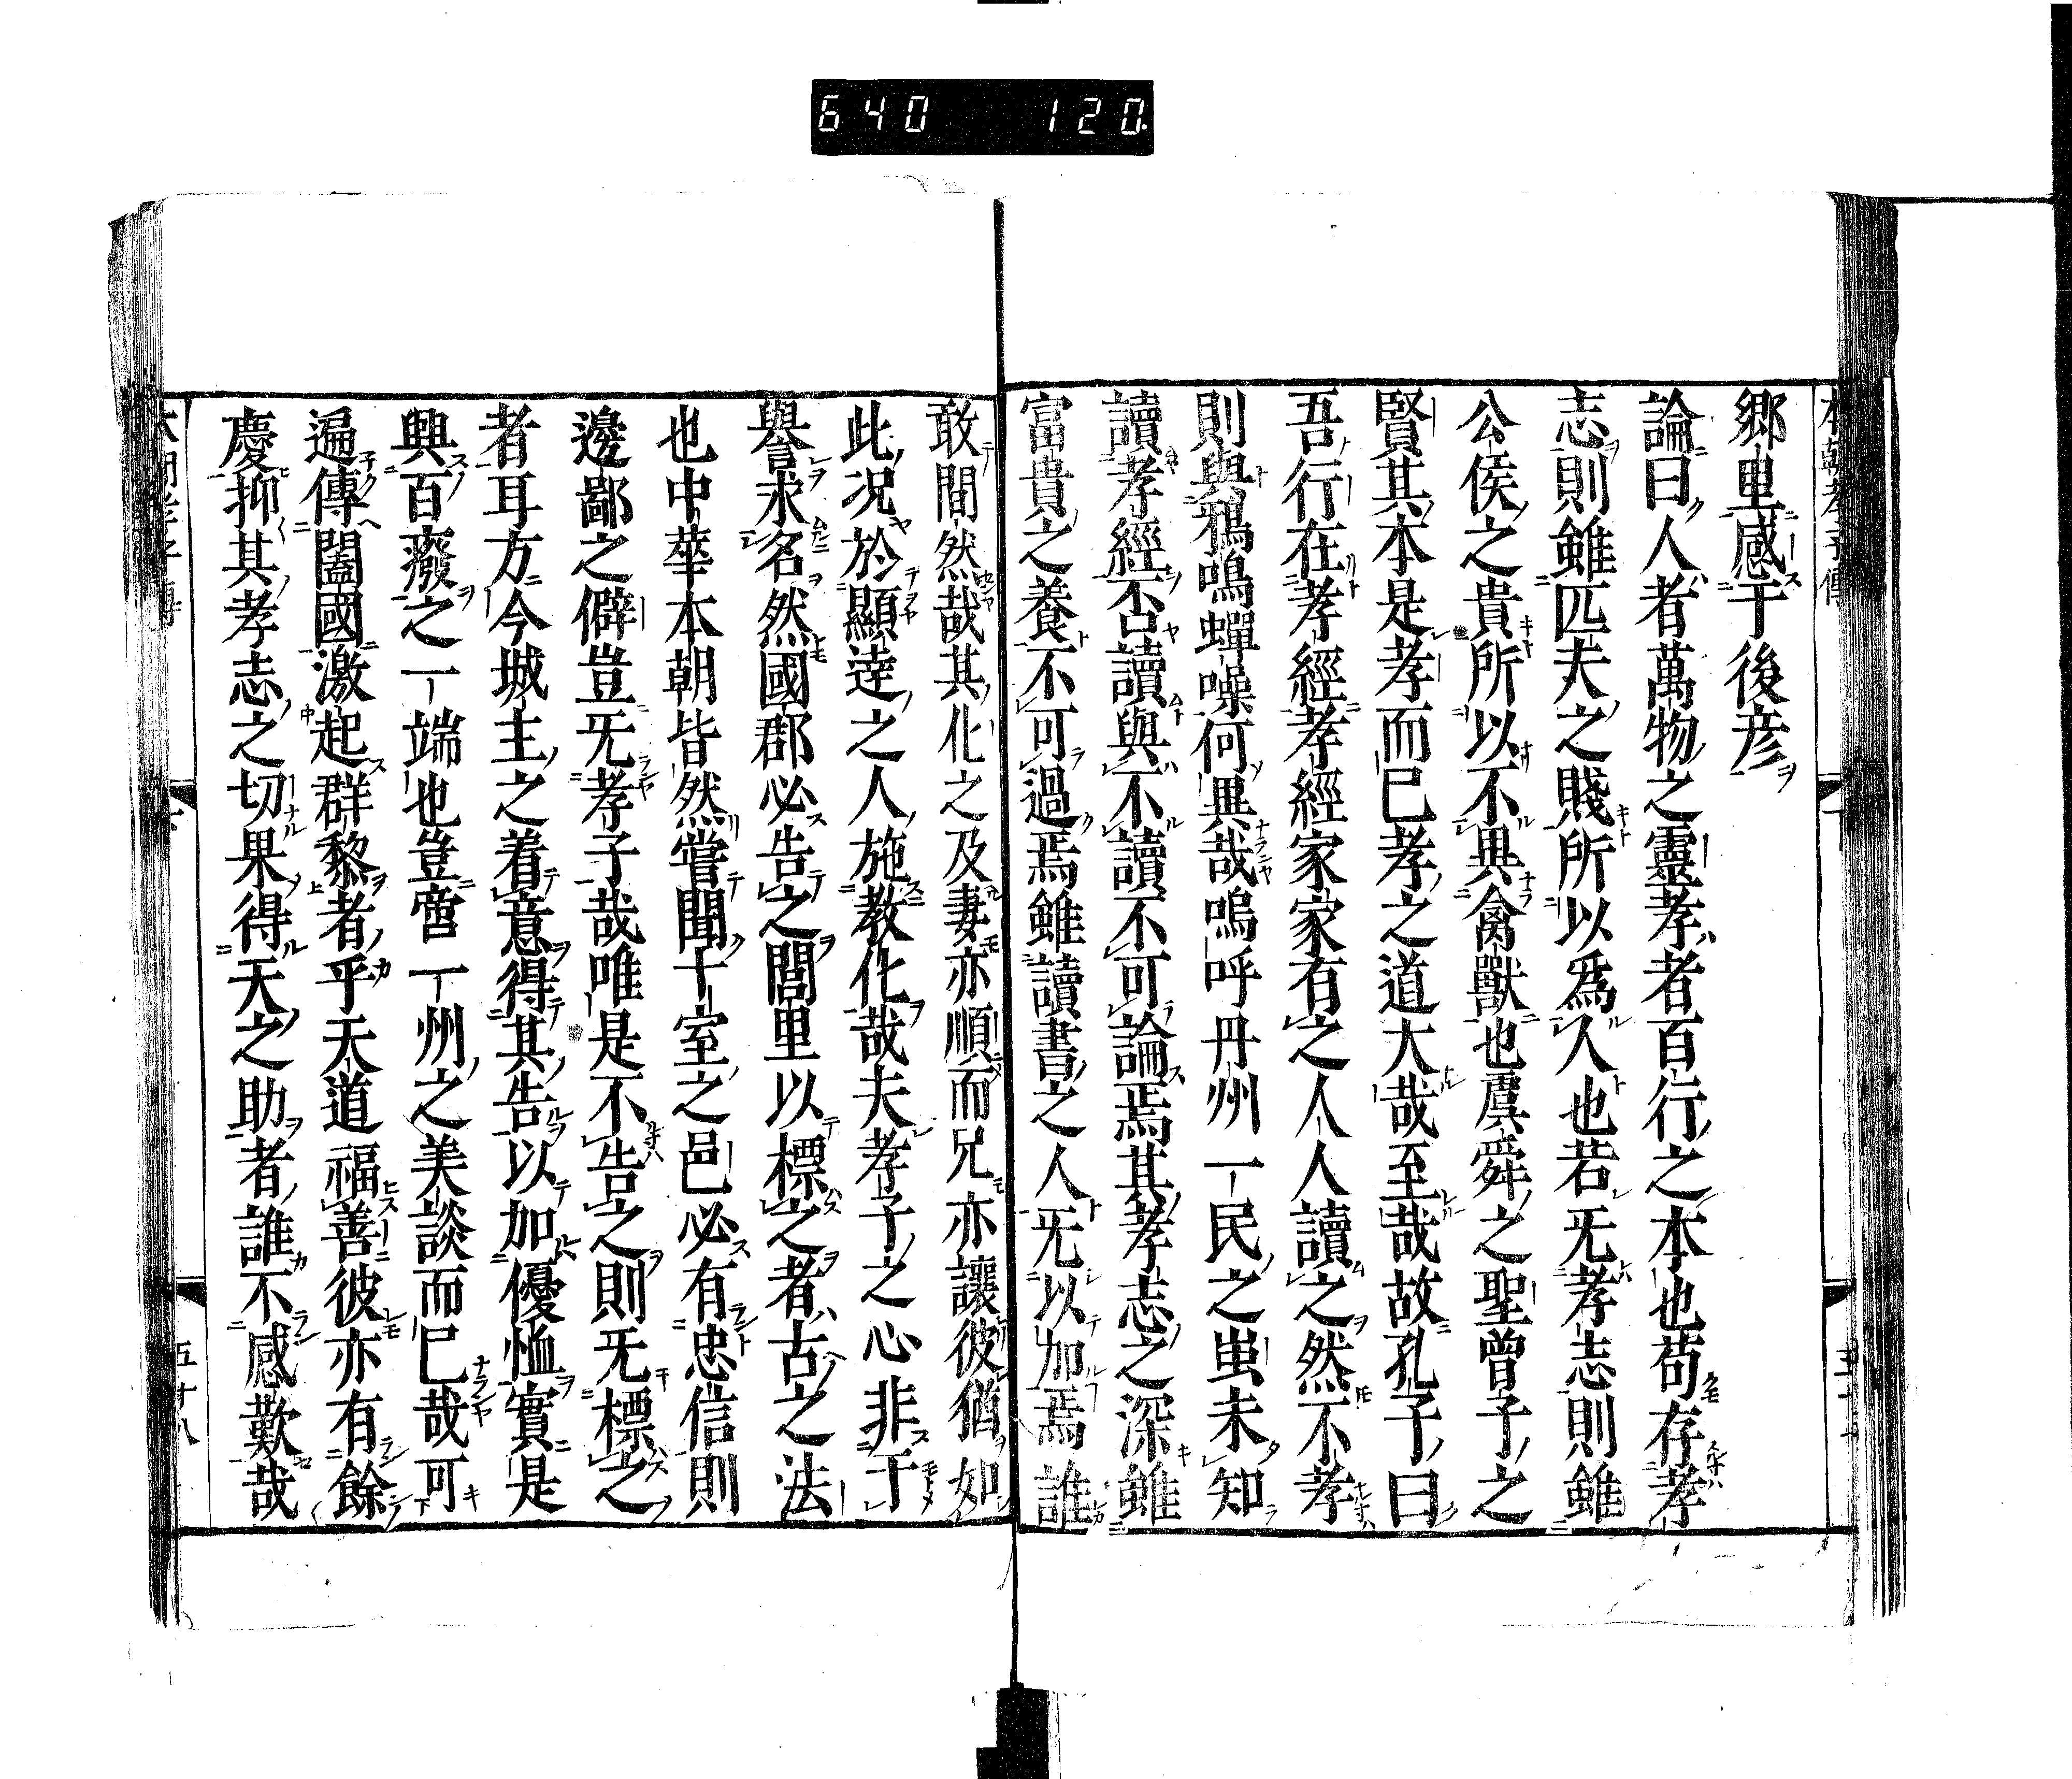 640 120.
本朝孝子傳
鄉里感于後彦
論曰人者萬物之靈孝者百行之本也苟存孝
志則雖匹夫之賤所以爲人也若旡孝志則雖
公侯之貴所以不異禽獸也虞舜之聖曾子之
賢其本是孝而已孝之道大哉至哉故孔子曰
吾行在孝經孝經家家有之人人讀之然不孝
則與鴉鳴蟬噪何異哉嗚呼丹州一民之蚩未知
讀孝經否讀與不讀不可論焉其孝志之深雖
富貴之養不可過焉雖讀書之人旡以加焉誰
敢間然哉其化之及妻亦順而兄亦讓彼猶如
此况於顯達之人施教化哉夫孝子之心非于
譽求名然國郡必告之閭里以標之者古之法
也中華本朝皆然嘗聞十室之邑必有忠信則
邊鄙之僻豈旡孝子哉唯是不告之則旡標之
者耳方今城主之着意得其告以加優恤實是
興百癈之一端也豈啻一州之美談而已哉可
遍傳闔國激起群黎者乎天道福善彼亦有餘
慶抑其孝志之切果得天之助者誰不感歎哉
五十八